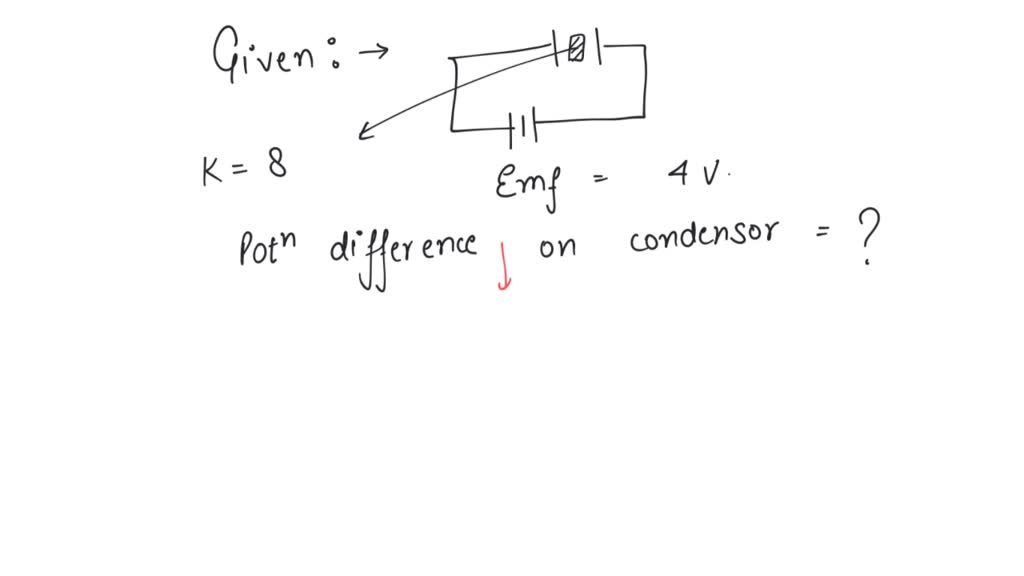 Given : →
K = 8
Emf = 4 V.
Potⁿ difference ↓ on condensor = ?